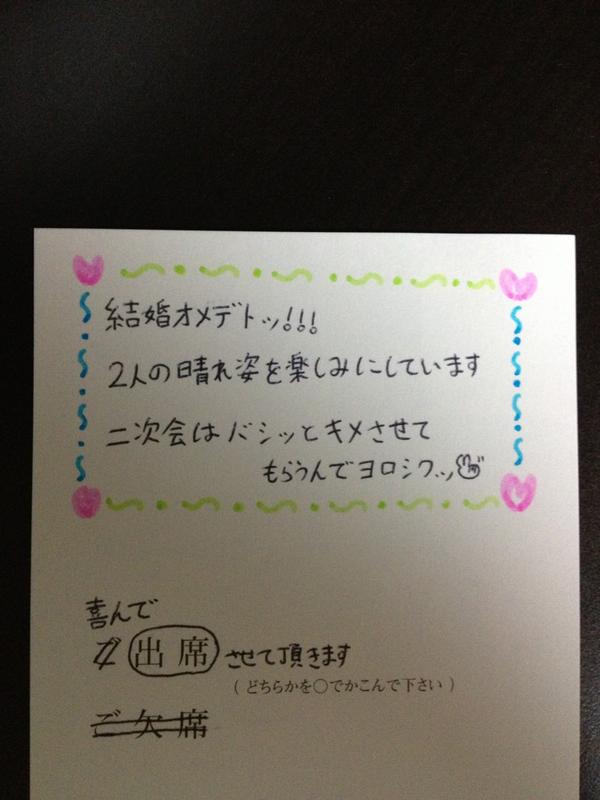 結婚オメデトッ!!!
2人の晴れ姿を楽しみにしています
二次会はバシッとキメさせて
もらうんでヨロシクッ
喜んで
ご出席させて頂きます
(どちらかを○でかこんで下さい)
ご欠席